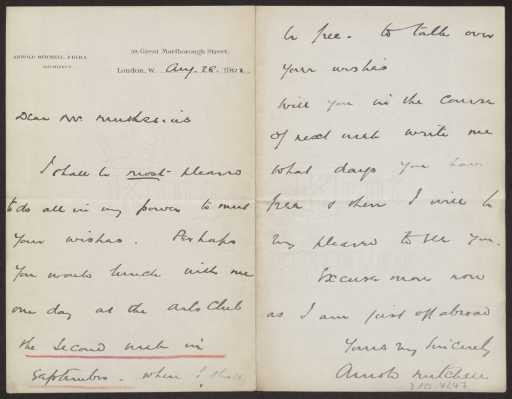 ARNOLD MITCHELL, F.R.I.B.A.
ARCHITECT.
Great Marlborough Street,
London, W. Aug. 28. 190
Dear Mr Muthesius
I shall be most pleased
to do all in my power to meet
your wishes. Perhaps
you would lunch with me
one day at the Arts Club
the second week in
September. when I shall
be free. to talk over
your wishes
Will you in the course
of next week write me
what days you have
free & then I will be
my pleasure to see you.
Excuse more now
as I am just off abroad
Yours very sincerely
Arnold Mitchell